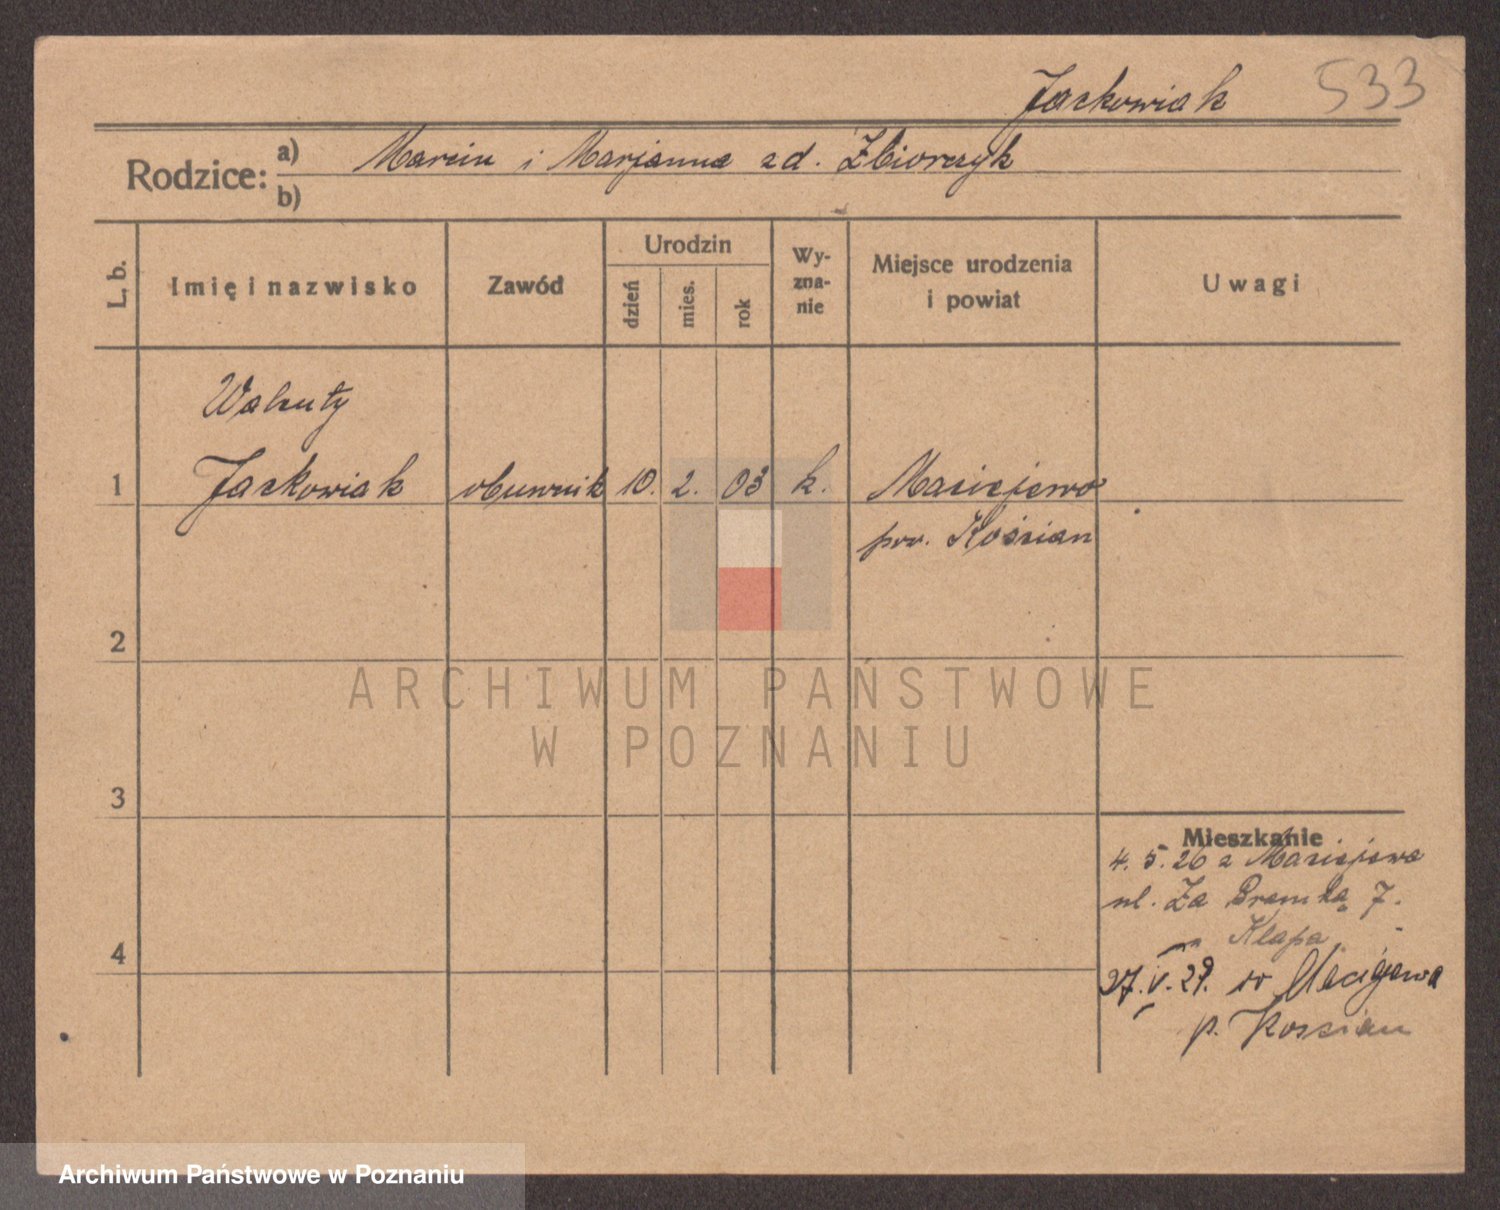 Jackowiak 533
Rodzice: a) Marcin i Marjanna zd. Zbiorczyk
b)
L. b.
Imię i nazwisko
Zawód
Urodzin
dzień
mies.
rok
Wy-
zna-
nie
Miejsce urodzenia
i powiat
Uwagi
Walenty
1 Jackowiak obuwnik 10. 2. 03 k. Maciejewo
pow. Kościan
2
ARCHIWUM PAŃSTWOWE
W POZNANIU
3
Mieszkanie
4. 5. 26 z Maciejewa
ul. Za Bramką 7.
Klapa
4
27. V. 29. w Maciejewa
p. Koscian
Archiwum Państwowe w Poznaniu